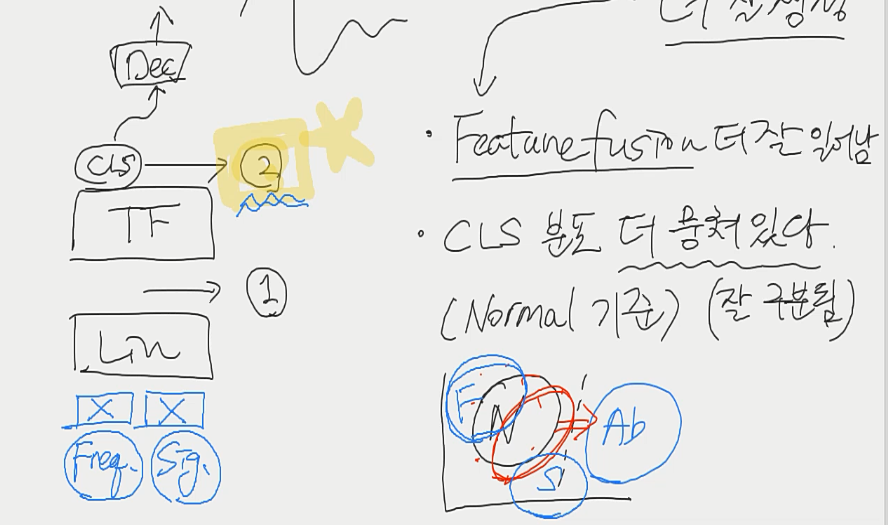 Dec
CLS
②
TF
①
Lin
X X
Freq. Sig.
더 잘
• Feature fusion 더 잘 일어남
• CLS 분포 더 뭉쳐있다.
(Normal 기준) (잘 구분됨)
F
N
Ab
S